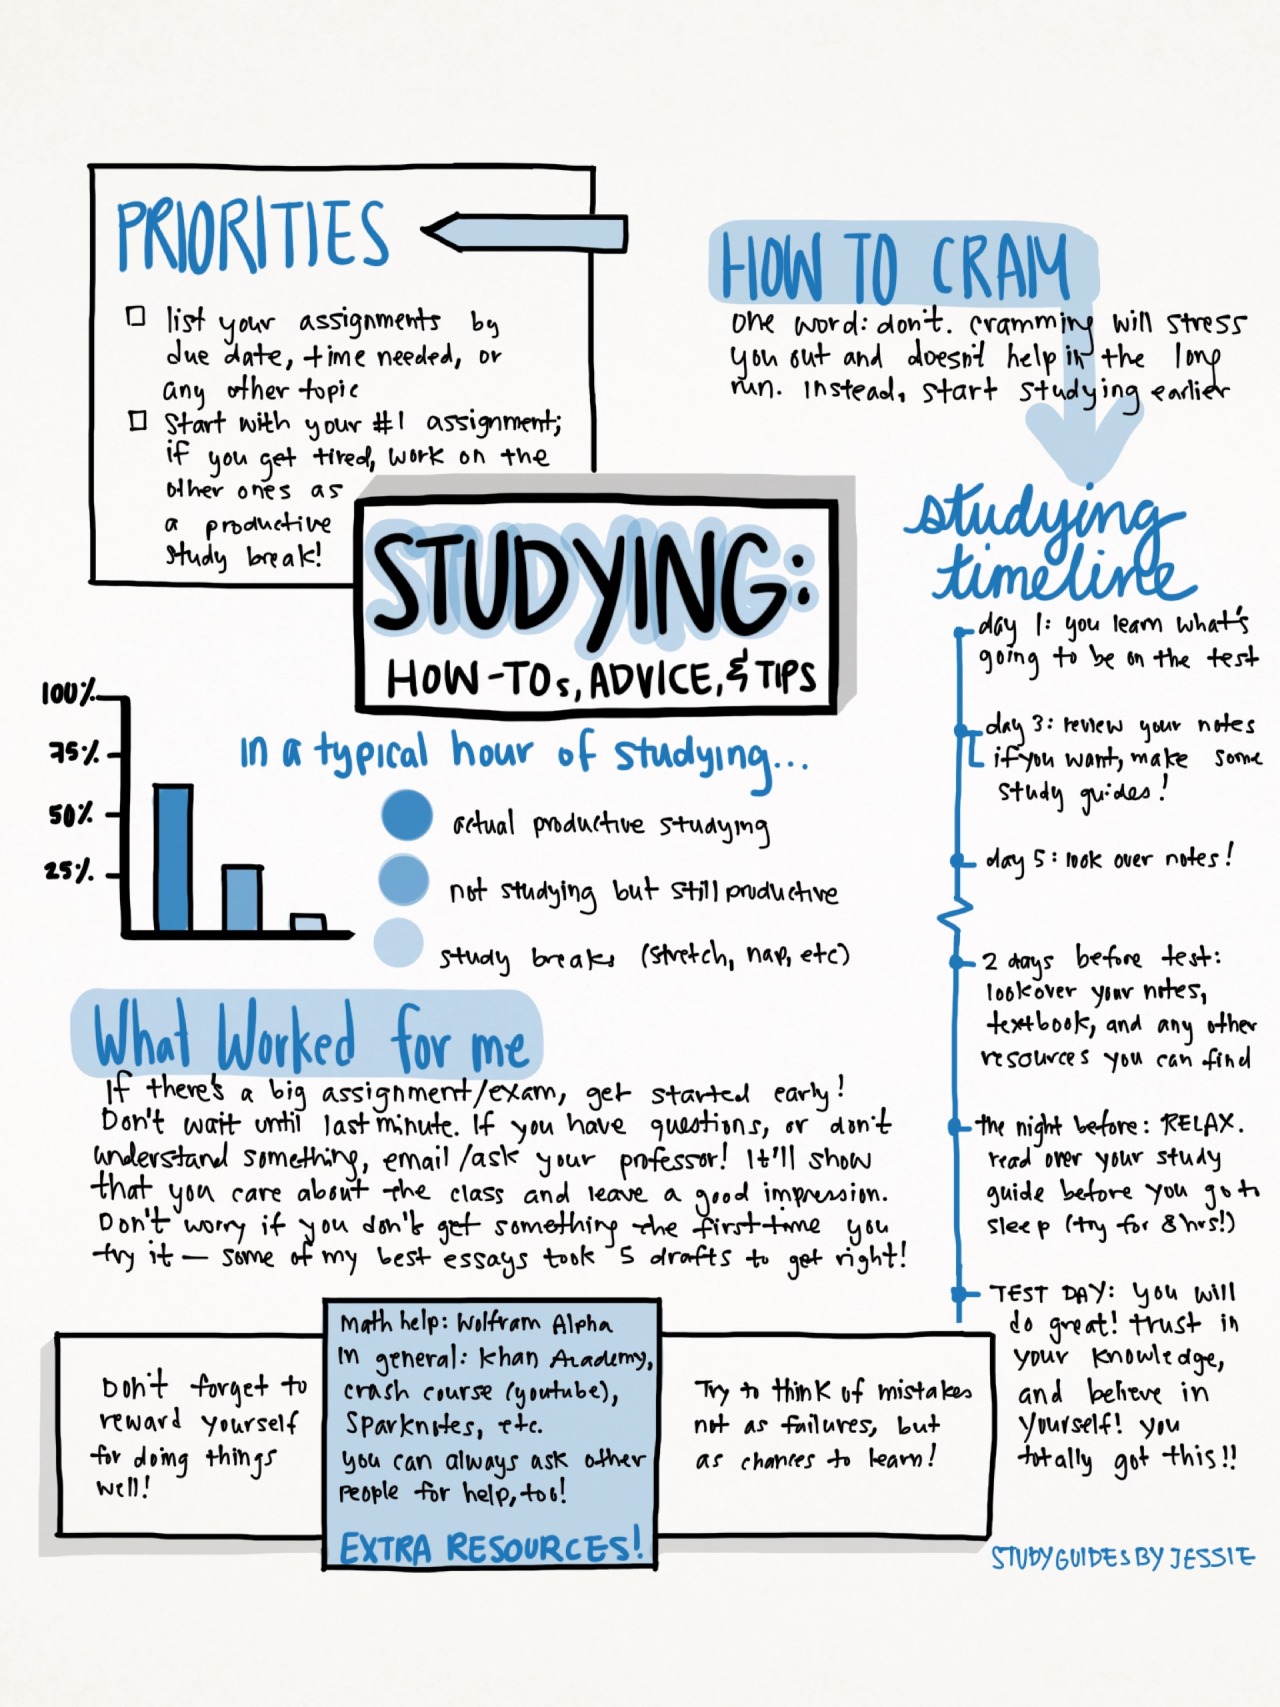 PRIORITIES
list your assignments by
due date, time needed, or
any other topic
Start with your #1 assignment;
if you get tired, work on the
other ones as
a productive
study break!
HOW TO CRAM
one word: don't. cramming will stress
you out and doesn't help in the long
run. Instead, start studying earlier
STUDYING:
HOW-TOs, ADVICE, & TIPS
studying
timeline
day 1: you learn what's
going to be on the test
day 3: review your notes
if you want, make some
study guides!
day 5: look over notes!
2 days before test:
look over your notes,
textbook, and any other
resources you can find
the night before: RELAX.
read over your study
guide before you go to
sleep (try for 8 hrs!)
TEST DAY: you will
do great! trust in
your knowledge,
and believe in
yourself! you
totally got this!!
100%
75%
50%
25%
In a typical hour of studying...
actual productive studying
not studying but still productive
study breaks (stretch, nap, etc)
What Worked for me
If there's a big assignment/exam, get started early!
Don't wait until last minute. If you have questions, or don't
understand something, email/ask your professor! It'll show
that you care about the class and leave a good impression.
Don't worry if you don't get something the first time you
try it — some of my best essays took 5 drafts to get right!
Don't forget to
reward yourself
for doing things
well!
Math help: Wolfram Alpha
In general: Khan Academy,
crash course (youtube),
Sparknotes, etc.
you can always ask other
people for help, too!
EXTRA RESOURCES!
Try to think of mistakes
not as failures, but
as chances to learn!
STUDYGUIDESBYJESSIE